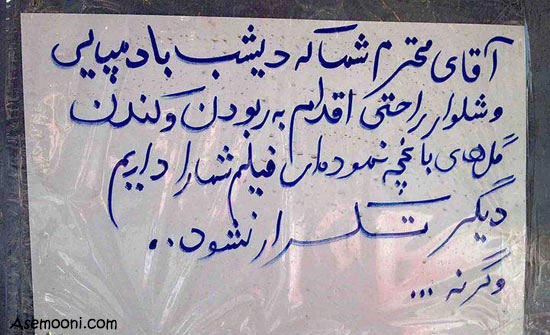 آقای محترم شما که دیشب با دمپایی
و شلوار راحتی اقدام به ربودن و کندن
گل‌های باغچه نموده‌اید فیلم شما را داریم
دیگر تکرار نشود..
وگرنه ...
Asemooni.com